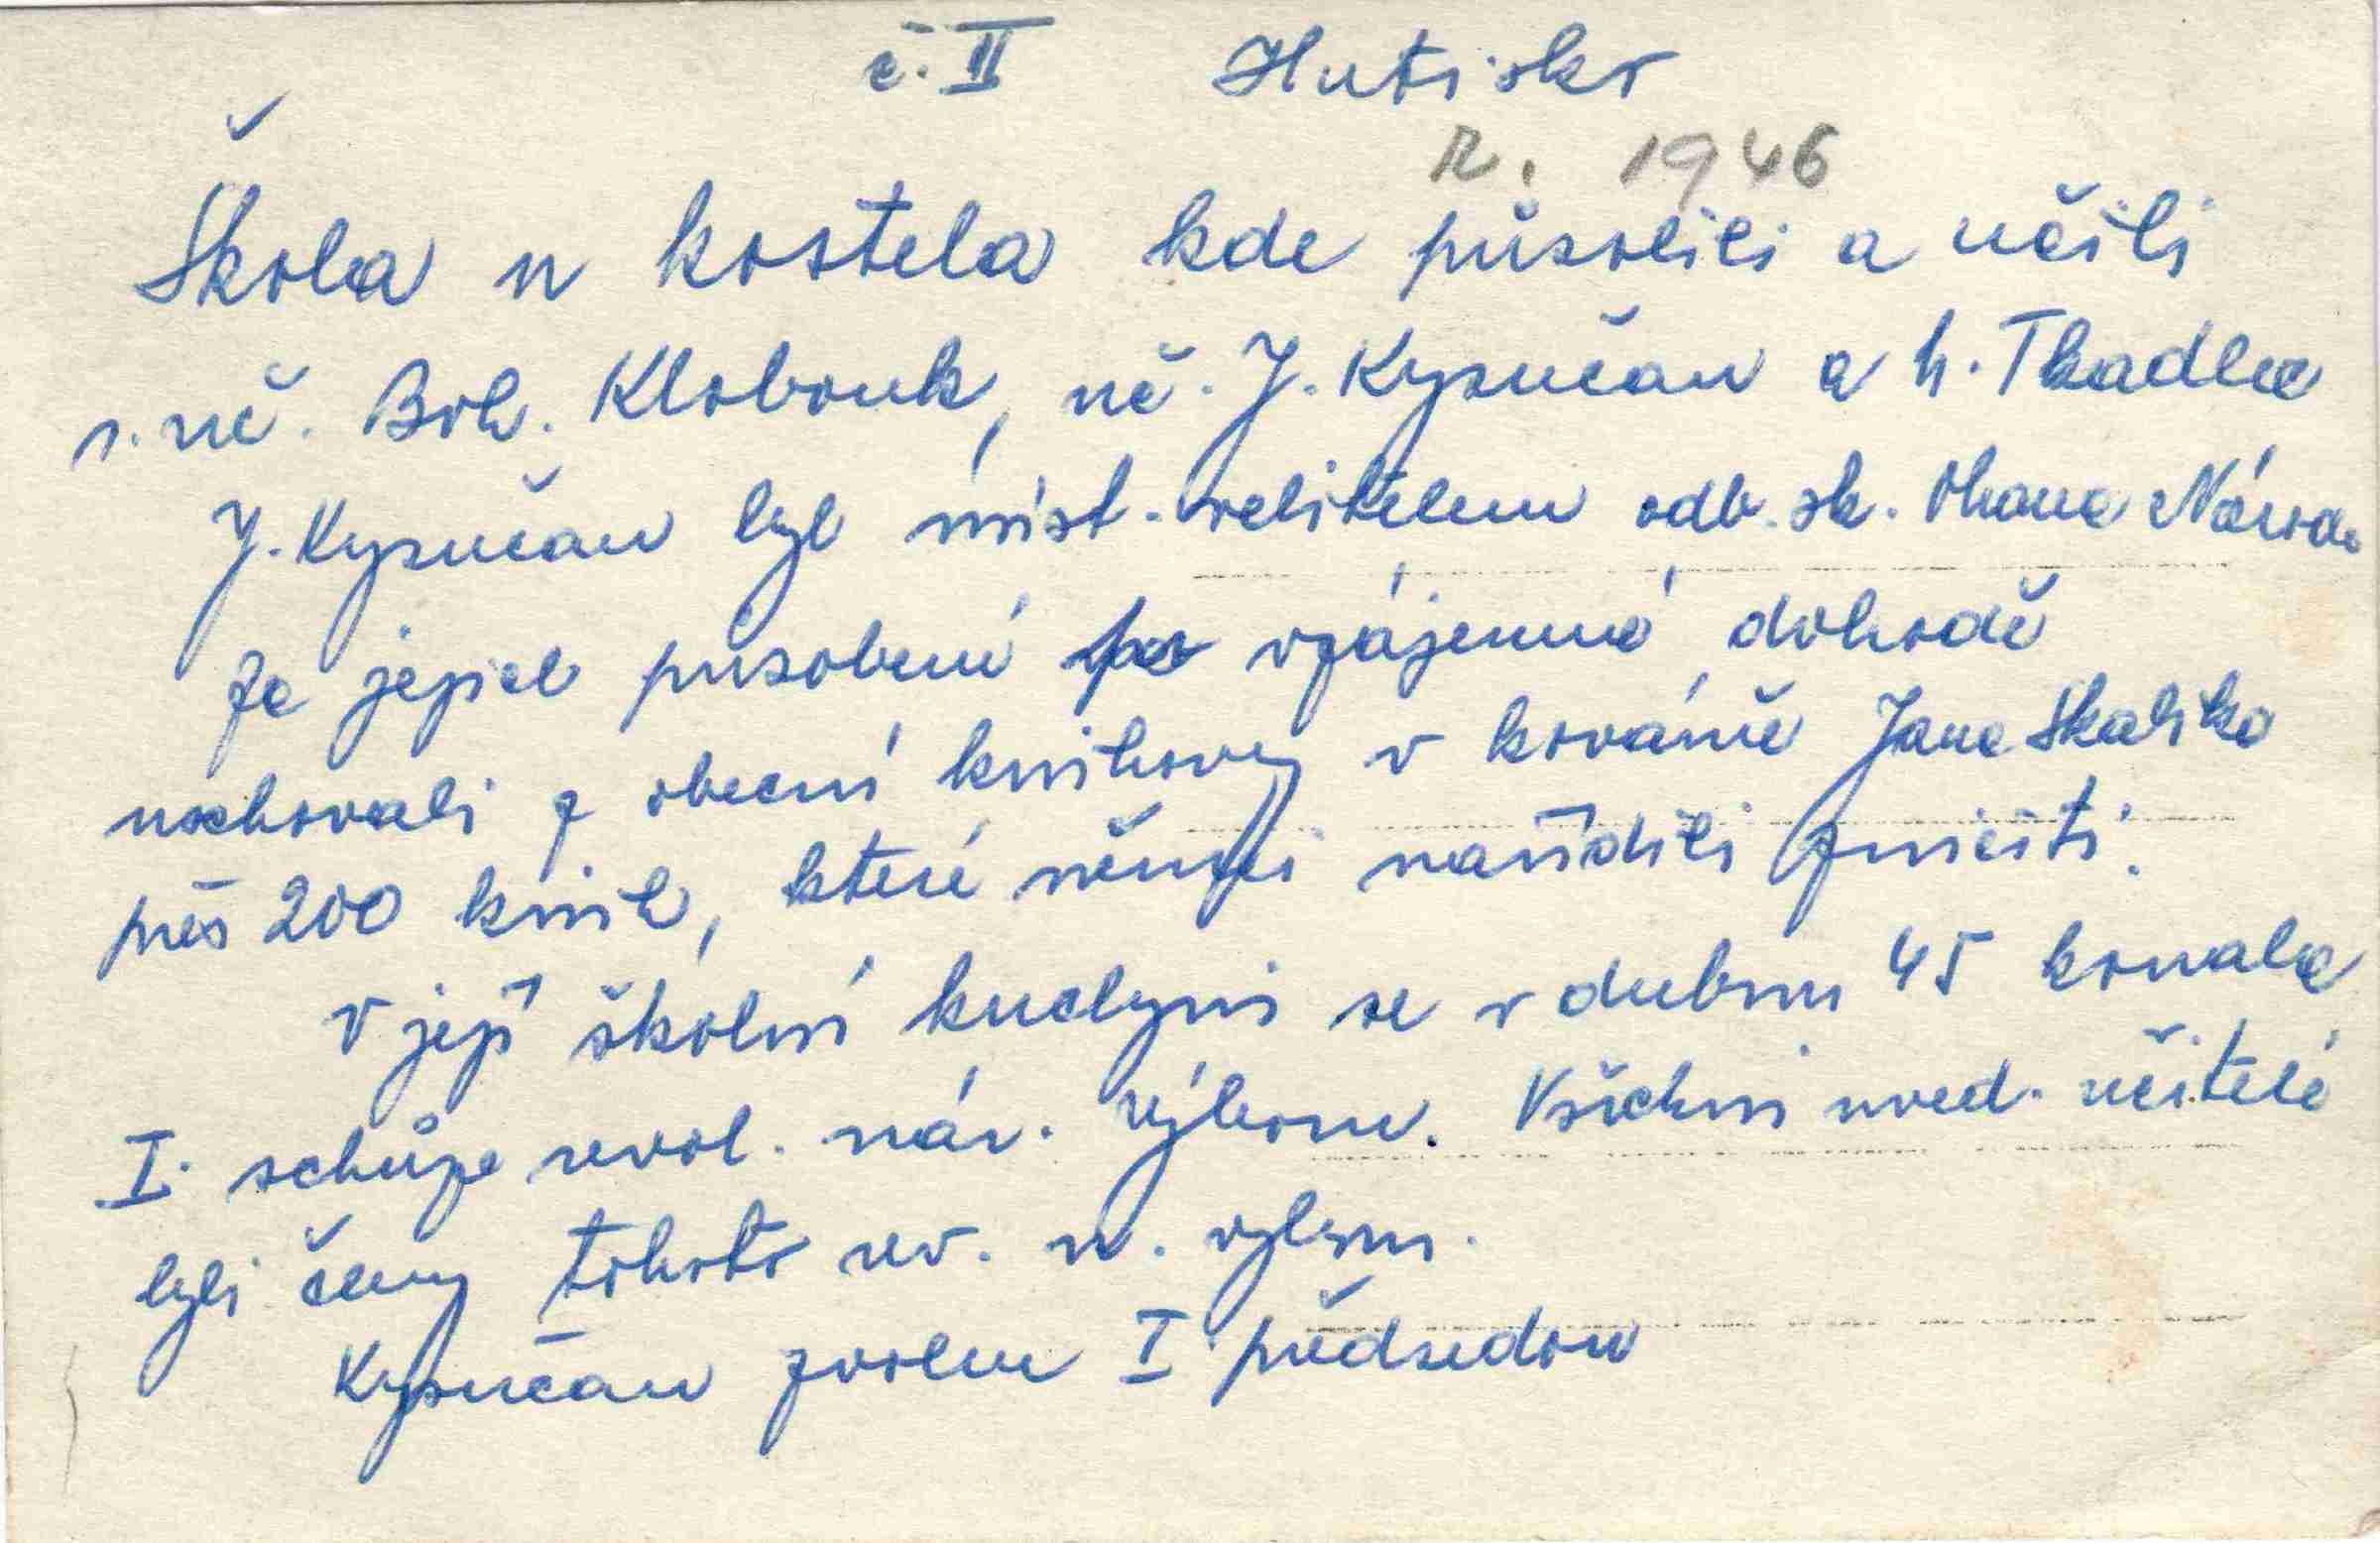 č. II Hutisko
r. 1946
Škola u kostela kde působili a učili
ř. uč. Boh. Klobouk, uč. J. Kysučan a h. Tkadlec
J. Kysučan byl míst. velitelem odb. sk. Obrana Národa
za jejich působení po vzájemné dohodě
uschovali z obecní knihovny v kovárně Jana
přes 200 knih, které němci nařídili zničiti.
V její školní kuchyni se v dubnu 45 konala
I. schůze revol. nár. výboru. Všichni uved. učitelé
byli členy tohoto rev. n. vyboru.
Kysučan zvolen I. předsedou